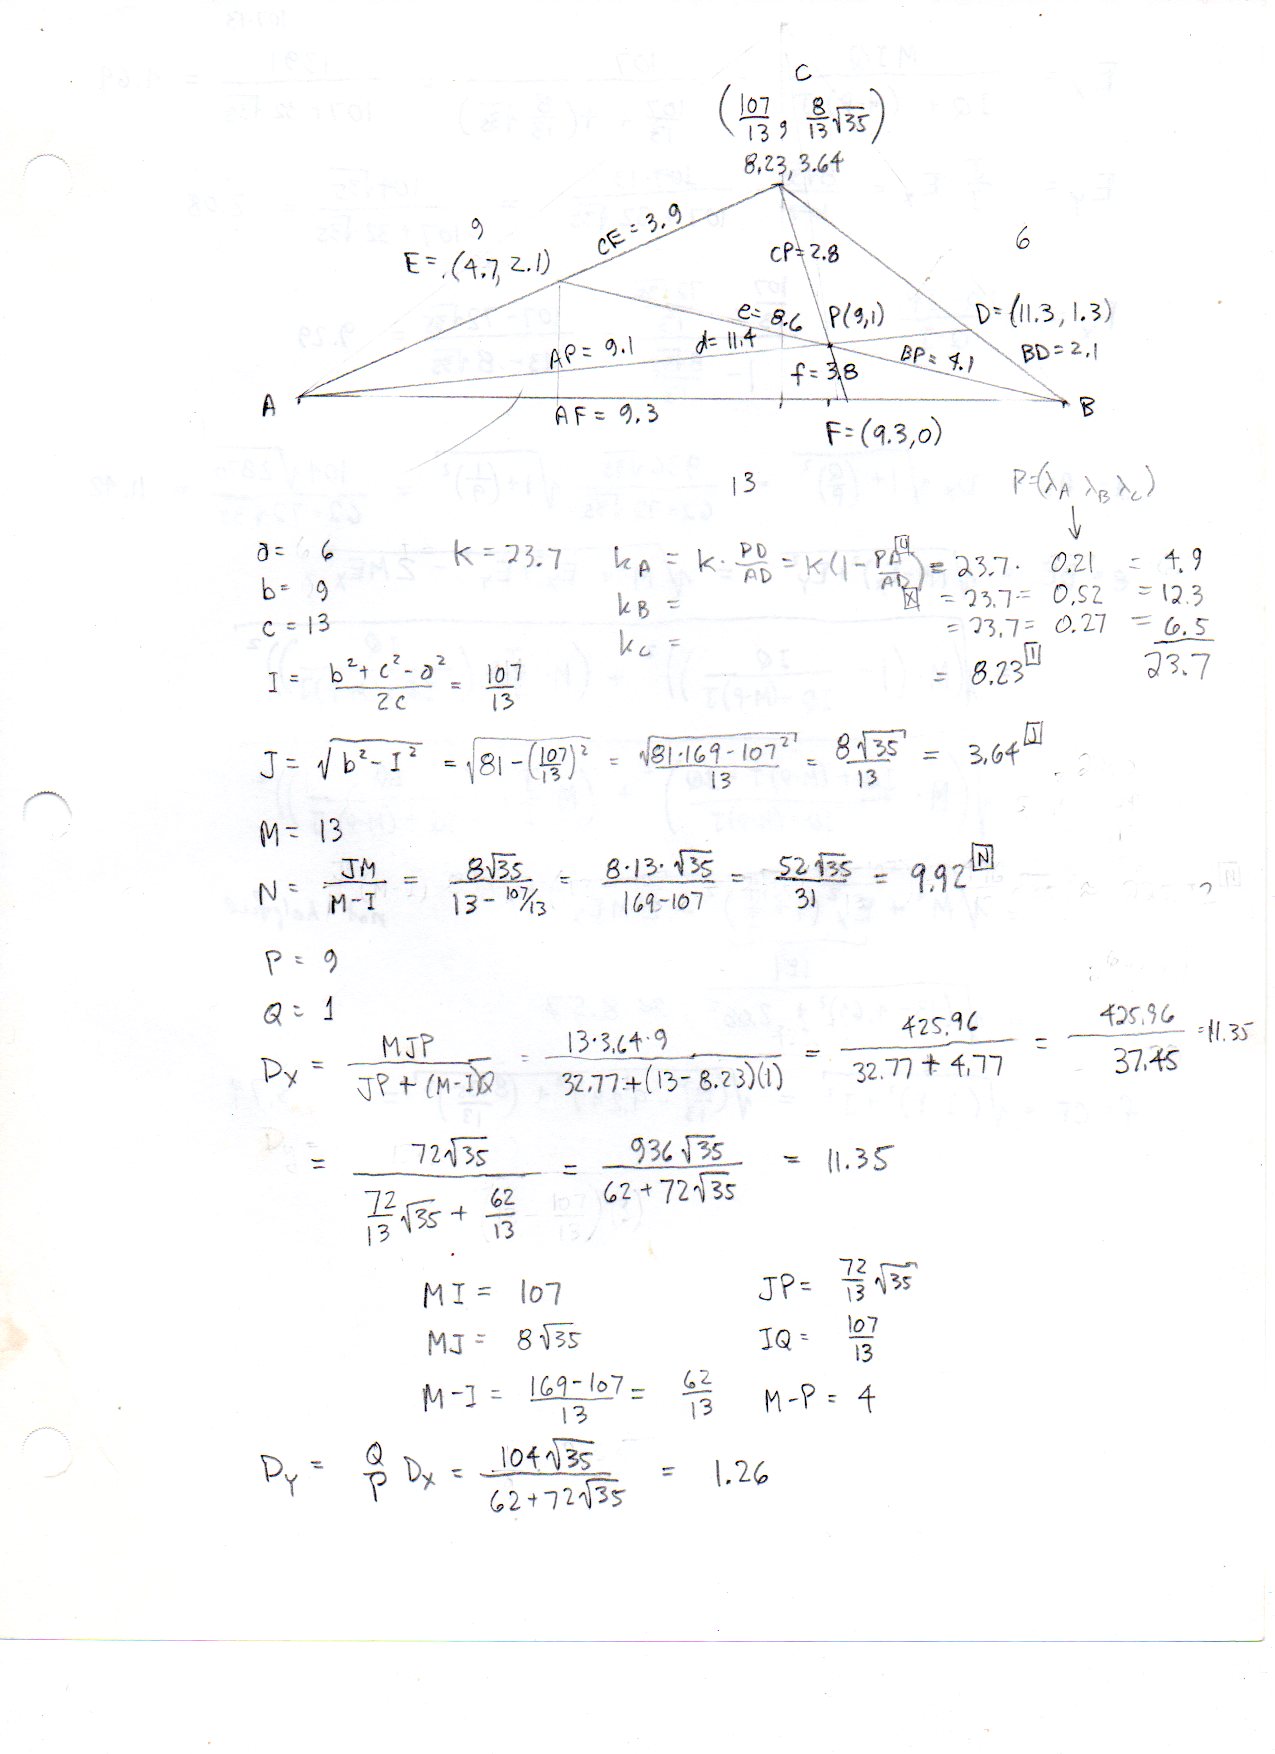 C
(107/13, 8/13 √35)
8.23, 3.64
9
CE = 3.9
6
E = (4.7, 2.1)
CP = 2.8
e = 8.6
P(9,1)
D = (11.3, 1.3)
AP = 9.1
d = 11.4
BP = 4.1
BD = 2.1
f = 3.8
A
AF = 9.3
B
F = (9.3, 0)
13
P = (λA λB λC)
a = 6
K = 23.7
kA = K · PD/AD = K(1 - PA/AD) = 23.7 · 0.21 = 4.9
U
b = 9
kB =
X
= 23.7 = 0.52 = 12.3
c = 13
kC =
= 23.7 = 0.27 = 6.5
23.7
I = (b² + c² - a²)/2c = 107/13 = 8.23 I
J = √(b² - I²) = √(81 - (107/13)²) = √(81·169 - 107²)/13 = 8√35/13 = 3.64 J
M = 13
N = JM/(M-I) = 8√35/(13 - 107/13) = 8·13·√35/(169-107) = 52√35/31 = 9.92 N
P = 9
Q = 1
DX = MJP/(JP + (M-I)Q) = 13·3.64·9/(32.77 + (13-8.23)(1)) = 425.96/(32.77 + 4.77) = 425.96/37.45 = 11.35
= 72√35/(72/13 √35 + 62/13) = 936√35/(62 + 72√35) = 11.35
MI = 107 JP = 72/13 √35
MJ = 8√35 IQ = 107/13
M-I = (169-107)/13 = 62/13 M-P = 4
DY = Q/P DX = 104√35/(62 + 72√35) = 1.26